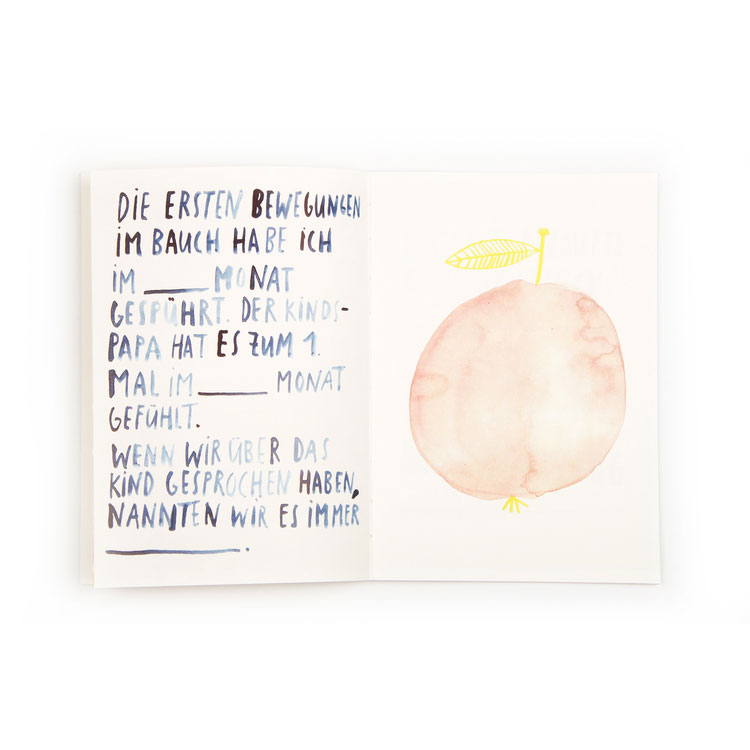 DIE ERSTEN BEWEGUNGEN
IM BAUCH HABE ICH
IM ____ MONAT
GESPÜHRT. DER KINDS-
PAPA HAT ES ZUM 1.
MAL IM ____ MONAT
GEFÜHLT.
WENN WIR ÜBER DAS
KIND GESPROCHEN HABEN,
NANNTEN WIR ES IMMER
________.